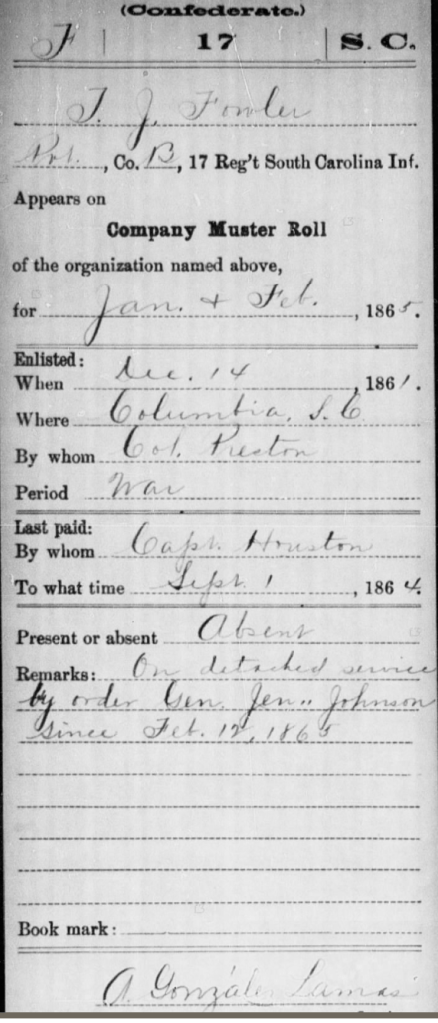 (Confederate.)
F | 17 | S. C.
T. J. Fowler
Pvt., Co. B, 17 Reg't South Carolina Inf.
Appears on
Company Muster Roll
of the organization named above,
for Jan. & Feb., 1865.
Enlisted:
When Dec. 14, 1861.
Where Columbia, S. C
By whom Col. Preston
Period War
Last paid:
By whom Capt. Houston
To what time Sept. 1, 1864.
Present or absent Absent
Remarks: On detached service
by order Gen. Johnson
since Feb. 12, 1865
Book mark:
A. Gonzalez Lamas